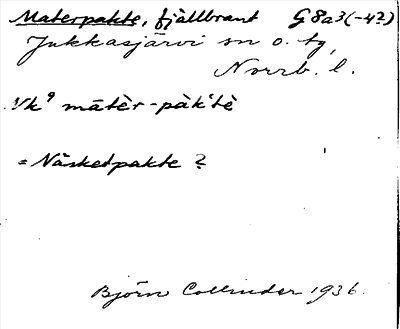 Materpakte, fjällbrant G8a3(-42)
Jukkasjärvi sn o. tg,
Norrb. l.
Vk⁹ mātèr-pàk'tè
= Nåsketpakte ?
Björn Collinder 1936.